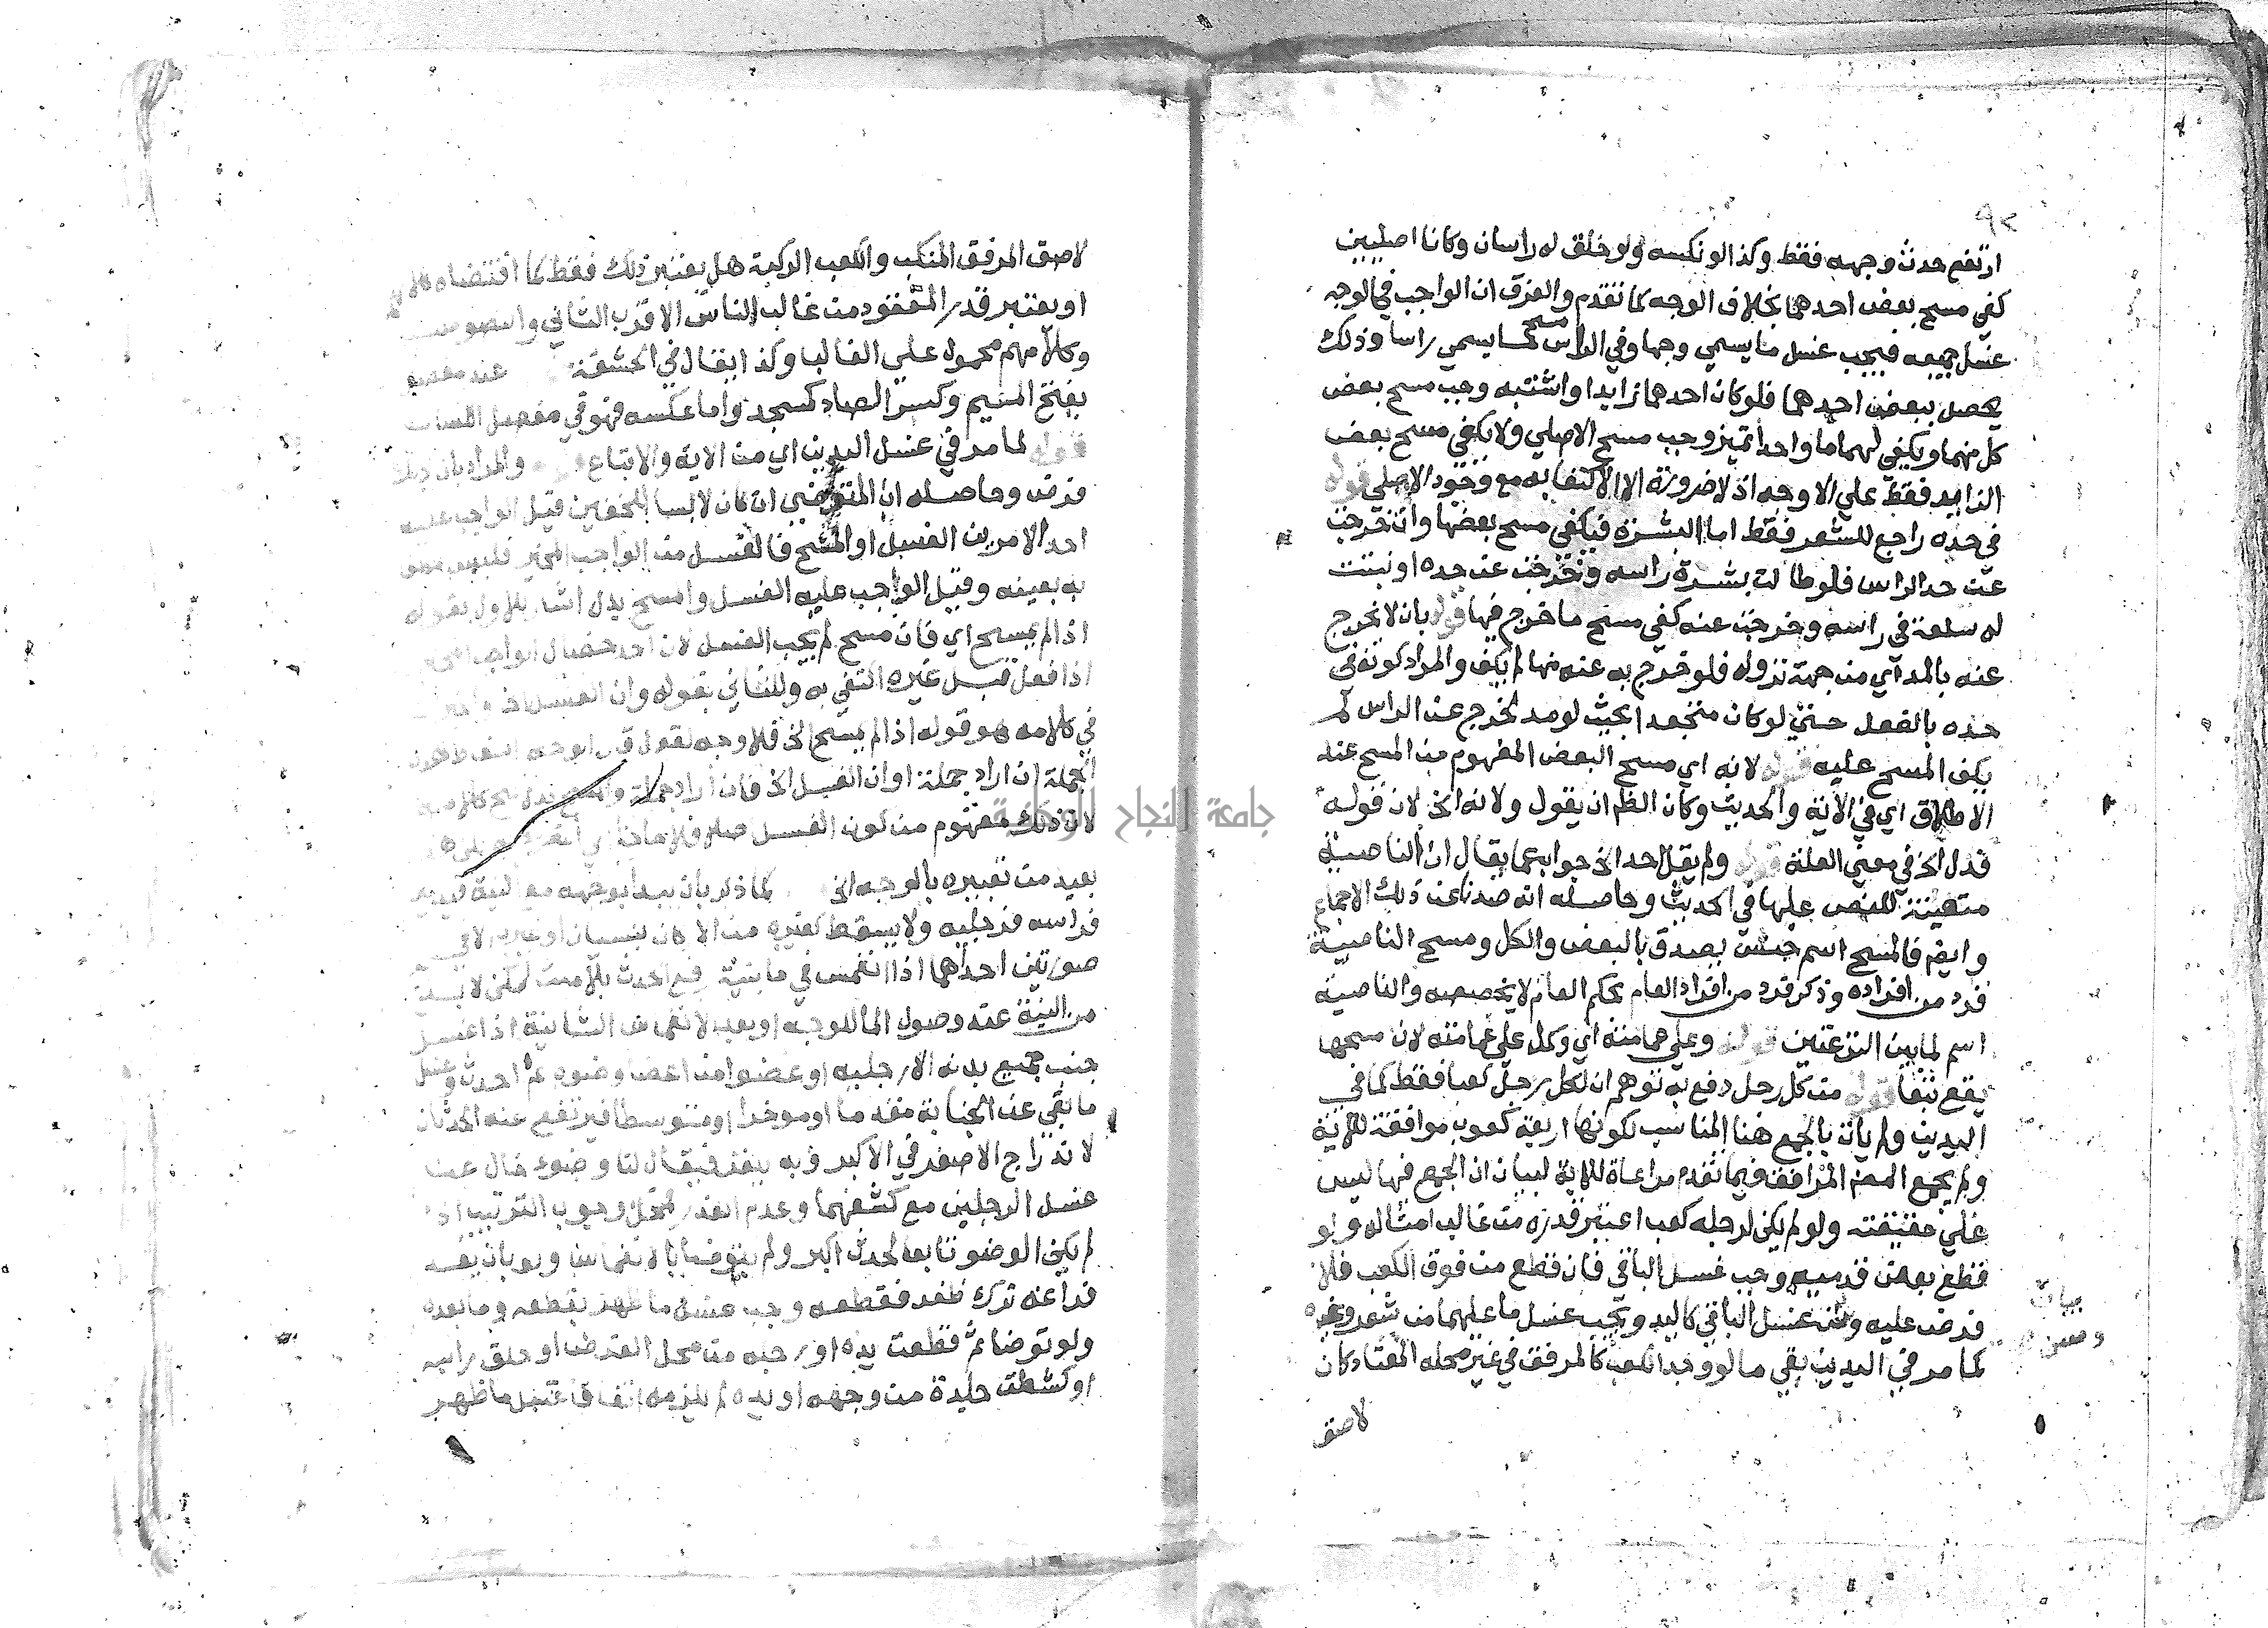 ٩٢
ارتفع حدث وجهه فقط وكذا لو نكسه ولو خلق له راسان وكانا اصليين
كفي مسح بعض احدهما بخلاف الوجه كما تقدم والفرق ان الواجب في الوجه
غسل جميعه فيجب غسل ما يسمي وجها وفي الراس مسح ما يسمي راسا وذلك
يحصل ببعض احدهما فلو كان احدهما زايدا واشتبه وجب مسح بعض
كل منهما ويكفي لهما ما واحد تميز وجب مسح الاصلي ولا يكفي مسح بعض
الزايد فقط علي الاوجه اذ لا ضرورة الا الاكتفا به مع وجود الاصلي قوله
في حده راجع للشعر فقط اما البشرة فيكفي مسح بعضها وان خرجت
عن حد الراس فلو طالت بشرة راسه وخرجت عن حده او نبتت
له سلعة في راسه وخرجت عنه كفي مسح ما خرج فيها قوله بان لا يخرج
عنه بالمد اي من جهة نزوله فلو خرج به عنه منها لم يكف والمراد كونه في
حده بالفعل حتي لو كان متجعدا بحيث لو مد لخرج عن الراس لم
يكف المسح عليه قوله لانه اي مسح البعض المفهوم من المسح عند
الاطلاق اي في الاية والحديث وكان الظم ان يقول ولانه الخ لان قوله
فدل الخ في معني العلة قوله ولم يقل احد الخ جواب عما يقال ان الناصية
متعينة للنص عليها في الحديث وحاصله انه صدنا عن ذلك الاجماع
وايضم فالمسح اسم جنس يصدق بالبعض والكل ومسح الناصية
فرد من افراده وذكر فرد من افراد العام بحكم العام لا يخصصه والناصية
اسم لما بين النزعتين قوله وعلي عمامته اي وكمل علي عمامته لان مسحها
يقع تبعا قوله من كل رجل دفع به توهم ان لكل رجل كعبا فقط كما في
اليدين ولم يات بالجمع هنا المناسب لكونها اربعة كعوب موافقة للاية
ولم يجمع المصم المرافق فيما تقدم مراعاة للاية لبيان ان الجمع فيها ليس
علي حقيقته ولو لم يكن لرجله كعب اعتبر قدره من غالب امثاله ولو
قطع بعض قدميه وجب غسل الباقي فان قطع من فوق الكعب فلا
فرض عليه وسن غسل الباقي كاليد ويجب غسل ما عليهما من شعر وغيره
كما مر في اليدين بقي ما لو وجد الكعب كالمرفق في غير محله المعتاد كان
لاصق
لاصق المرفق المنكب والكعب الركبة هل يعتبر ذلك فقط كما اقتضاه كلام
او يعتبر قدر المفقود من غالب الناس الاقرب الثاني
وكلامهم محمول علي الغالب وكذا يقال في الحشفة عند
بفتح الميم وكسر الصاد كمسجد واما عكسه فهو في مفصل اللسان
قوله لما مر في غسل اليدين اي من الاية والاتباع والمراد بان ذلك
فرض وحاصله ان المتوضي ان كان لابسا للخفين قيل الواجب عليه
احد الامرين الغسل او المسح فالغسل من الواجب المخير
به بعينه وقيل الواجب عليه الغسل والمسح بدل اشار للاول بقوله
اذا لم يمسح اي فان مسح لم يجب الغسل لان احد خصال الواجب
اذا فعل قبل غيره اكتفي به وللثاني بقوله وان الغسل
في كلامه هو قوله اذا لم يمسح الخ فلا وجه لقول
الجملة ان اراد جملة او ان الغسل الخ فان اراد جملة والمسح بدل
لان ذلك مفهوم من كون الغسل
بعيد من تعبيره بالوجه الخ كما ذكر بان يبدا بوجهه مع النية
فراسه فرجليه ولا يسقط كغيره من الاركان بنسيان او غيره الا في
صورتين احداهما اذا انغمس في ما بنية رفع الحدث
من النية عند وصول الما للوجه او بعد الانغماس الثانية اذا غسل
جنب جميع بدنه الا رجليه او عضوا من اعضا وضوه ثم احدث وغسل
ما بقي عن الجنابة مقدما او موخرا او متوسطا فيرتفع عنه الحدثان
لاندراج الاصغر في الاكبر وبه يلغز فيقال لنا وضوء خال عن
غسل الرجلين مع كشفهما وعدم العذر فمحل وجوب الترتيب اذا
لم يكن الوضو تابعا لحدث اكبر ولم يتوضا بالانغماس ولو بان بعد
فراغه ترك ظفر فقطعه وجب غسل ما ظهر بقطعه وما بعده
ولو توضا ثم قطعت يده او رجله من محل الفرض او حلق راسه
او كشطت جلدة من وجهه او يده لم يلزمه غسل ما ظهر
جامعة النجاح الوطنية